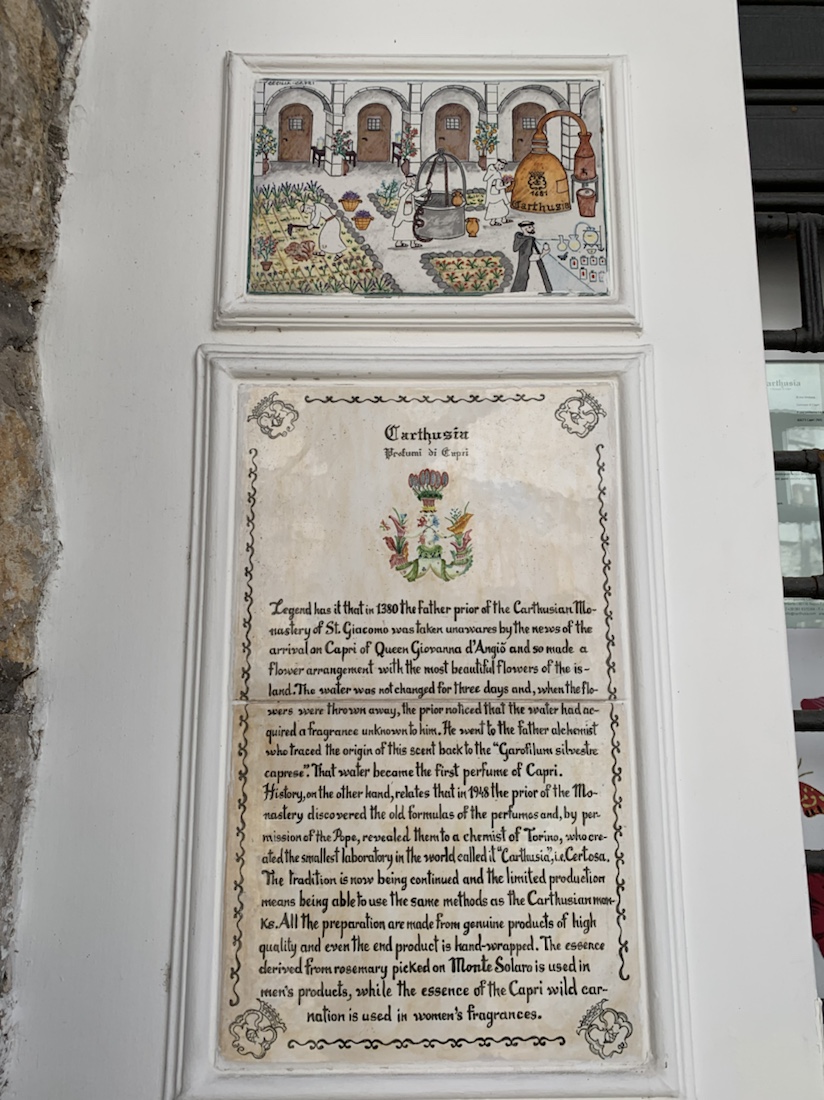 CECILIA CAPRI
1681
Carthusia
Carthusia
Profumi di Capri
Legend has it that in 1380 the Father prior of the Carthusian Mo-
nastery of St. Giacomo was taken unawares by the news of the
arrival on Capri of Queen Giovanna d'Angiò and so made a
flower arrangement with the most beautiful flowers of the is-
land. The water was not changed for three days and, when the flo-
wers were thrown away, the prior noticed that the water had ac-
quired a fragrance unknown to him. He went to the father alchemist
who traced the origin of this scent back to the "Garofilum silvestre
caprese". That water became the first perfume of Capri.
History, on the other hand, relates that in 1948 the prior of the Mo-
nastery discovered the old formulas of the perfumes and, by per-
mission of the Pope, revealed them to a chemist of Torino, who cre-
ated the smallest laboratory in the world called it "Carthusia", i.e. Certosa.
The tradition is now being continued and the limited production
means being able to use the same methods as the Carthusian mon-
ks. All the preparation are made from genuine products of high
quality and even the end product is hand-wrapped. The essence
derived from rosemary picked on Monte Solaro is used in
men's products, while the essence of the Capri wild car-
nation is used in women's fragrances.